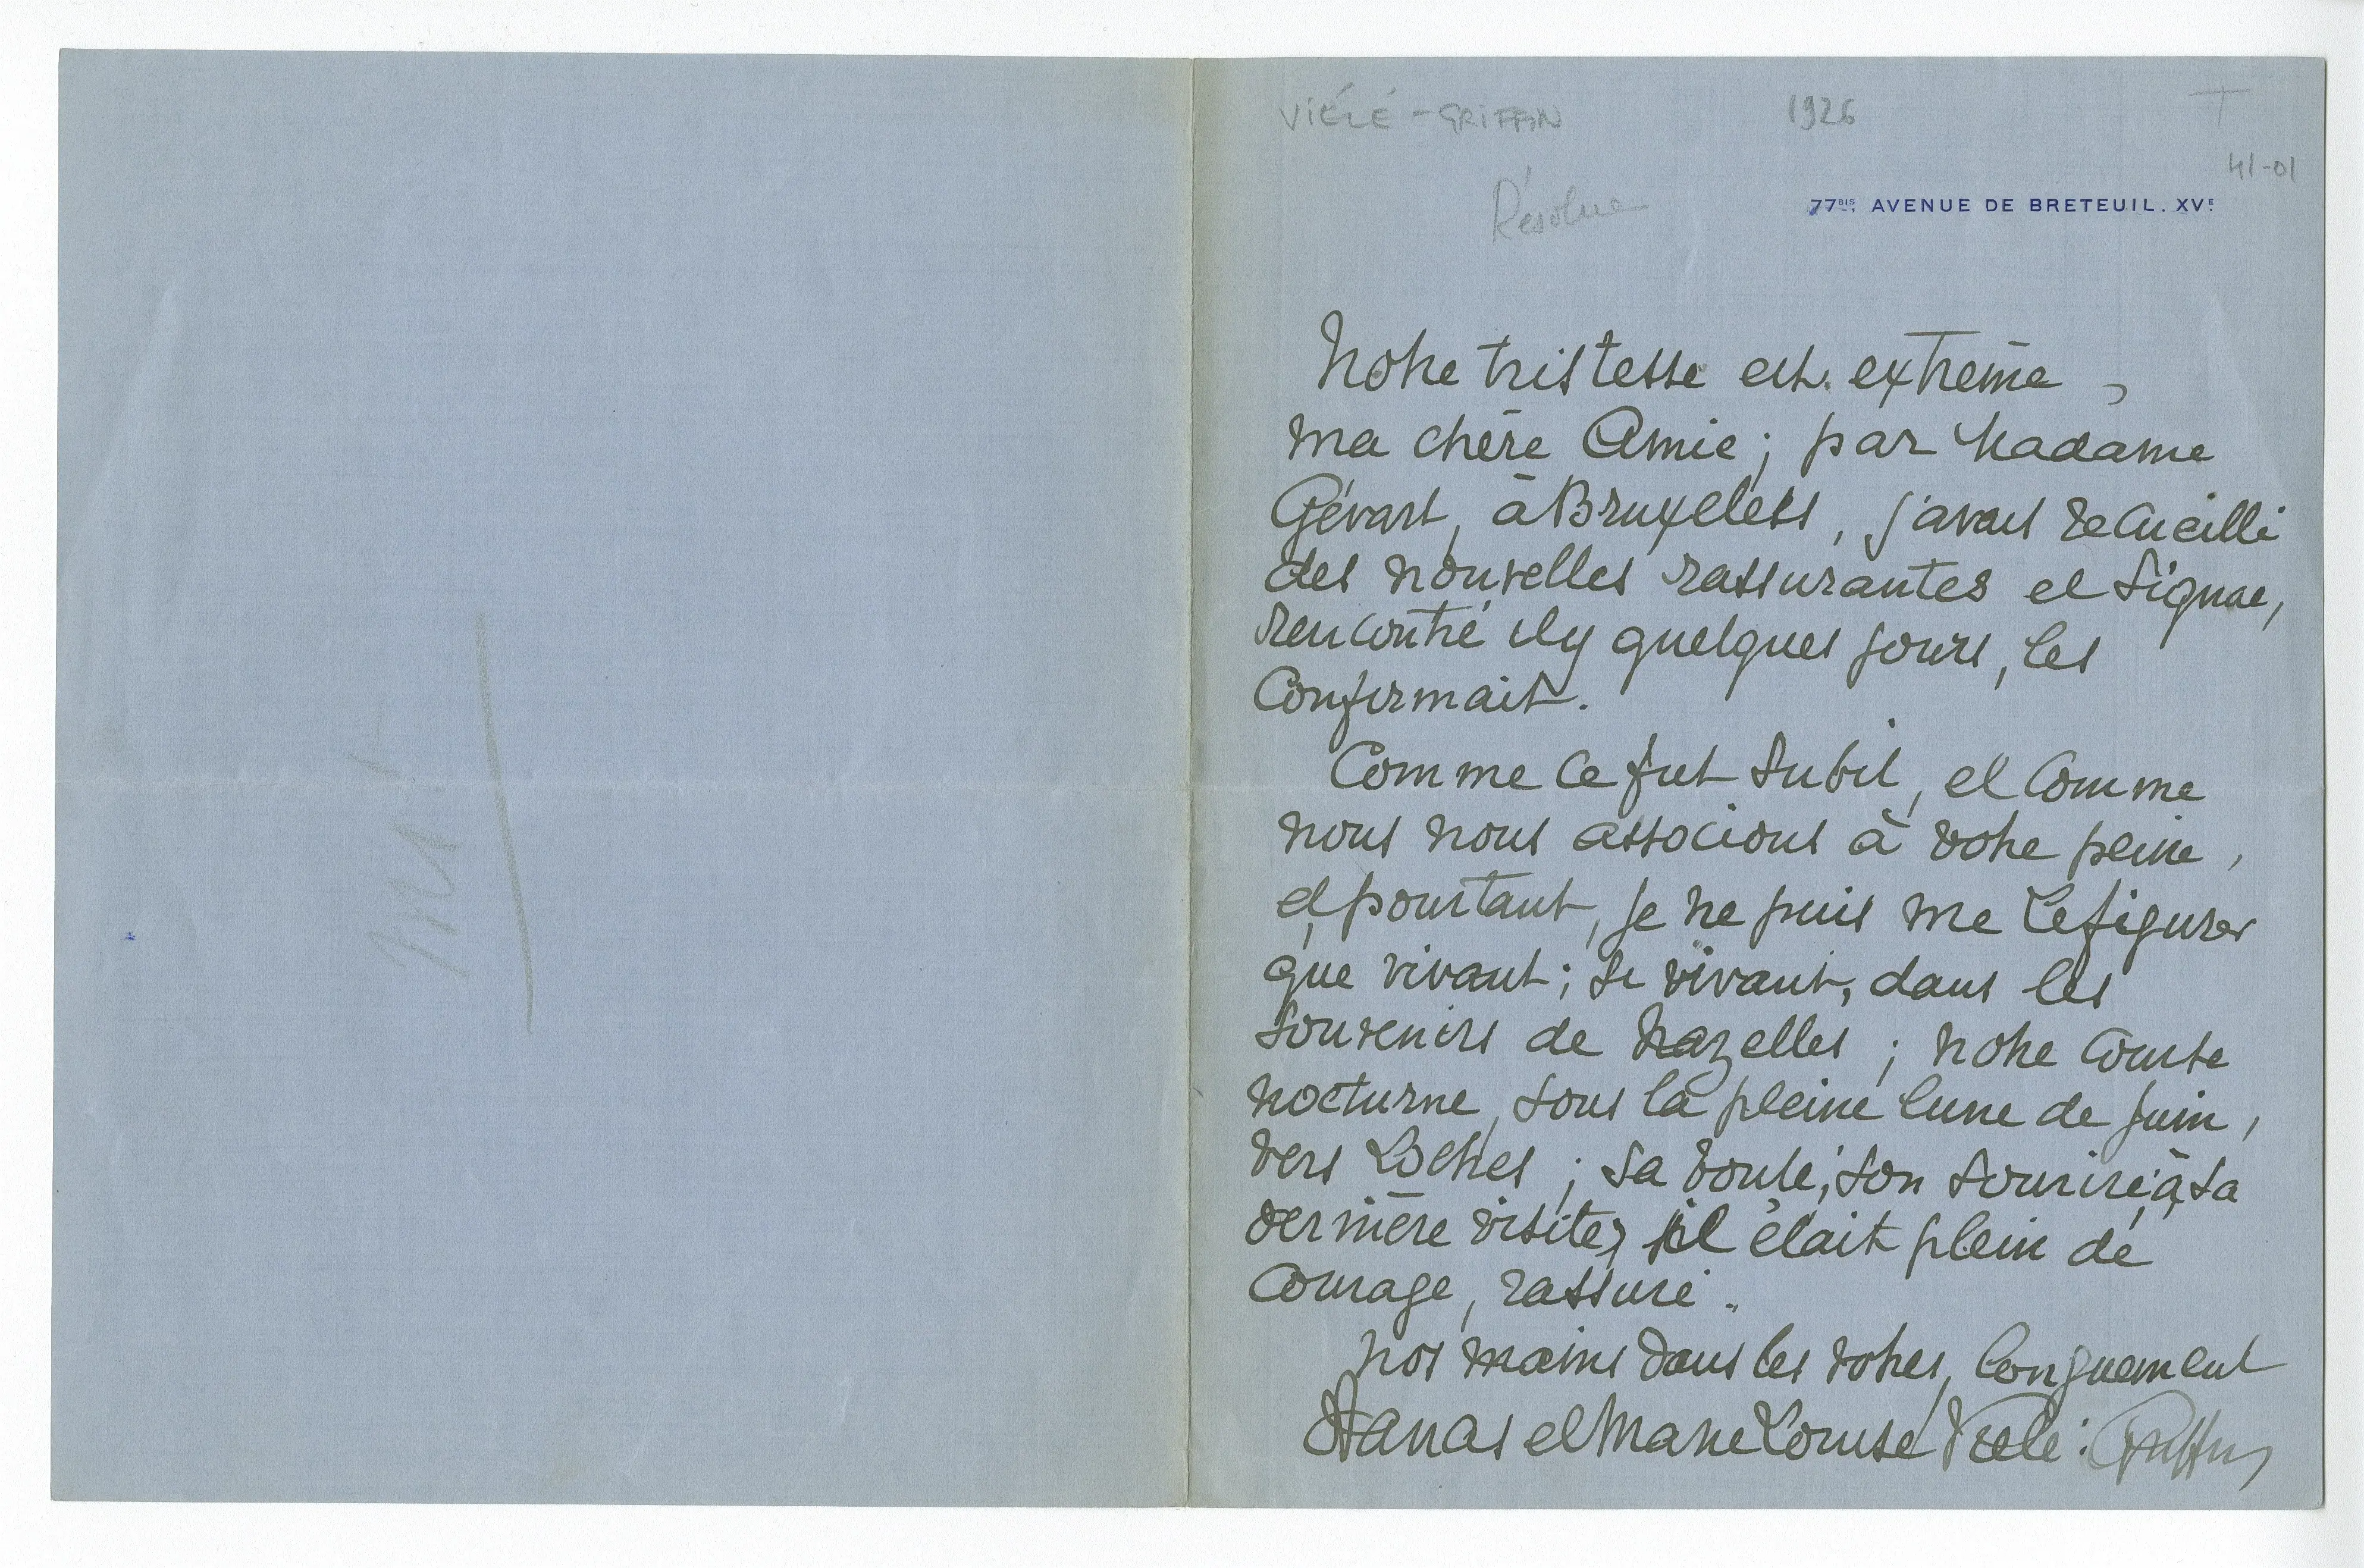 VIÉLÉ-GRIFFIN 1926 T
41-01
77BIS AVENUE DE BRETEUIL. XVE
Notre tristesse est extrême,
ma chère Amie; par Madame
Gévart, à Bruxelles, j'avais recueilli
des nouvelles rassurantes et Signac,
rencontré il y quelques jours, les
Confirmait.
Comme ce fut subit, et comme
nous nous associons à votre peine,
et, pourtant, je ne puis me le figurer
que vivant; si vivant, dans les
souvenirs de Nazelles; notre course
nocturne, sous la pleine lune de juin,
vers Loches; sa bonté, son sourire, à sa
dernière visite, il était plein de
Courage, rassuré..
nos mains dans les votres, longuement
et Marie Louise Viélé-Griffin